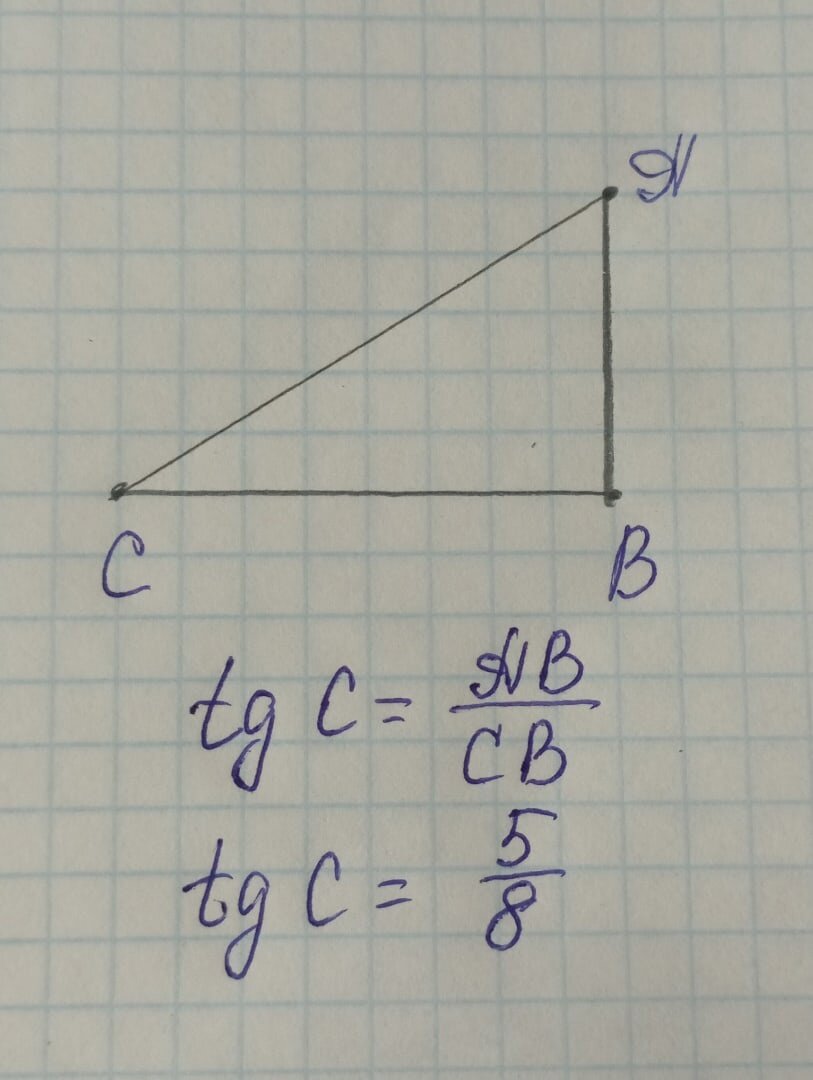 A
C B
tg C = AB/CB
tg C = 5/8